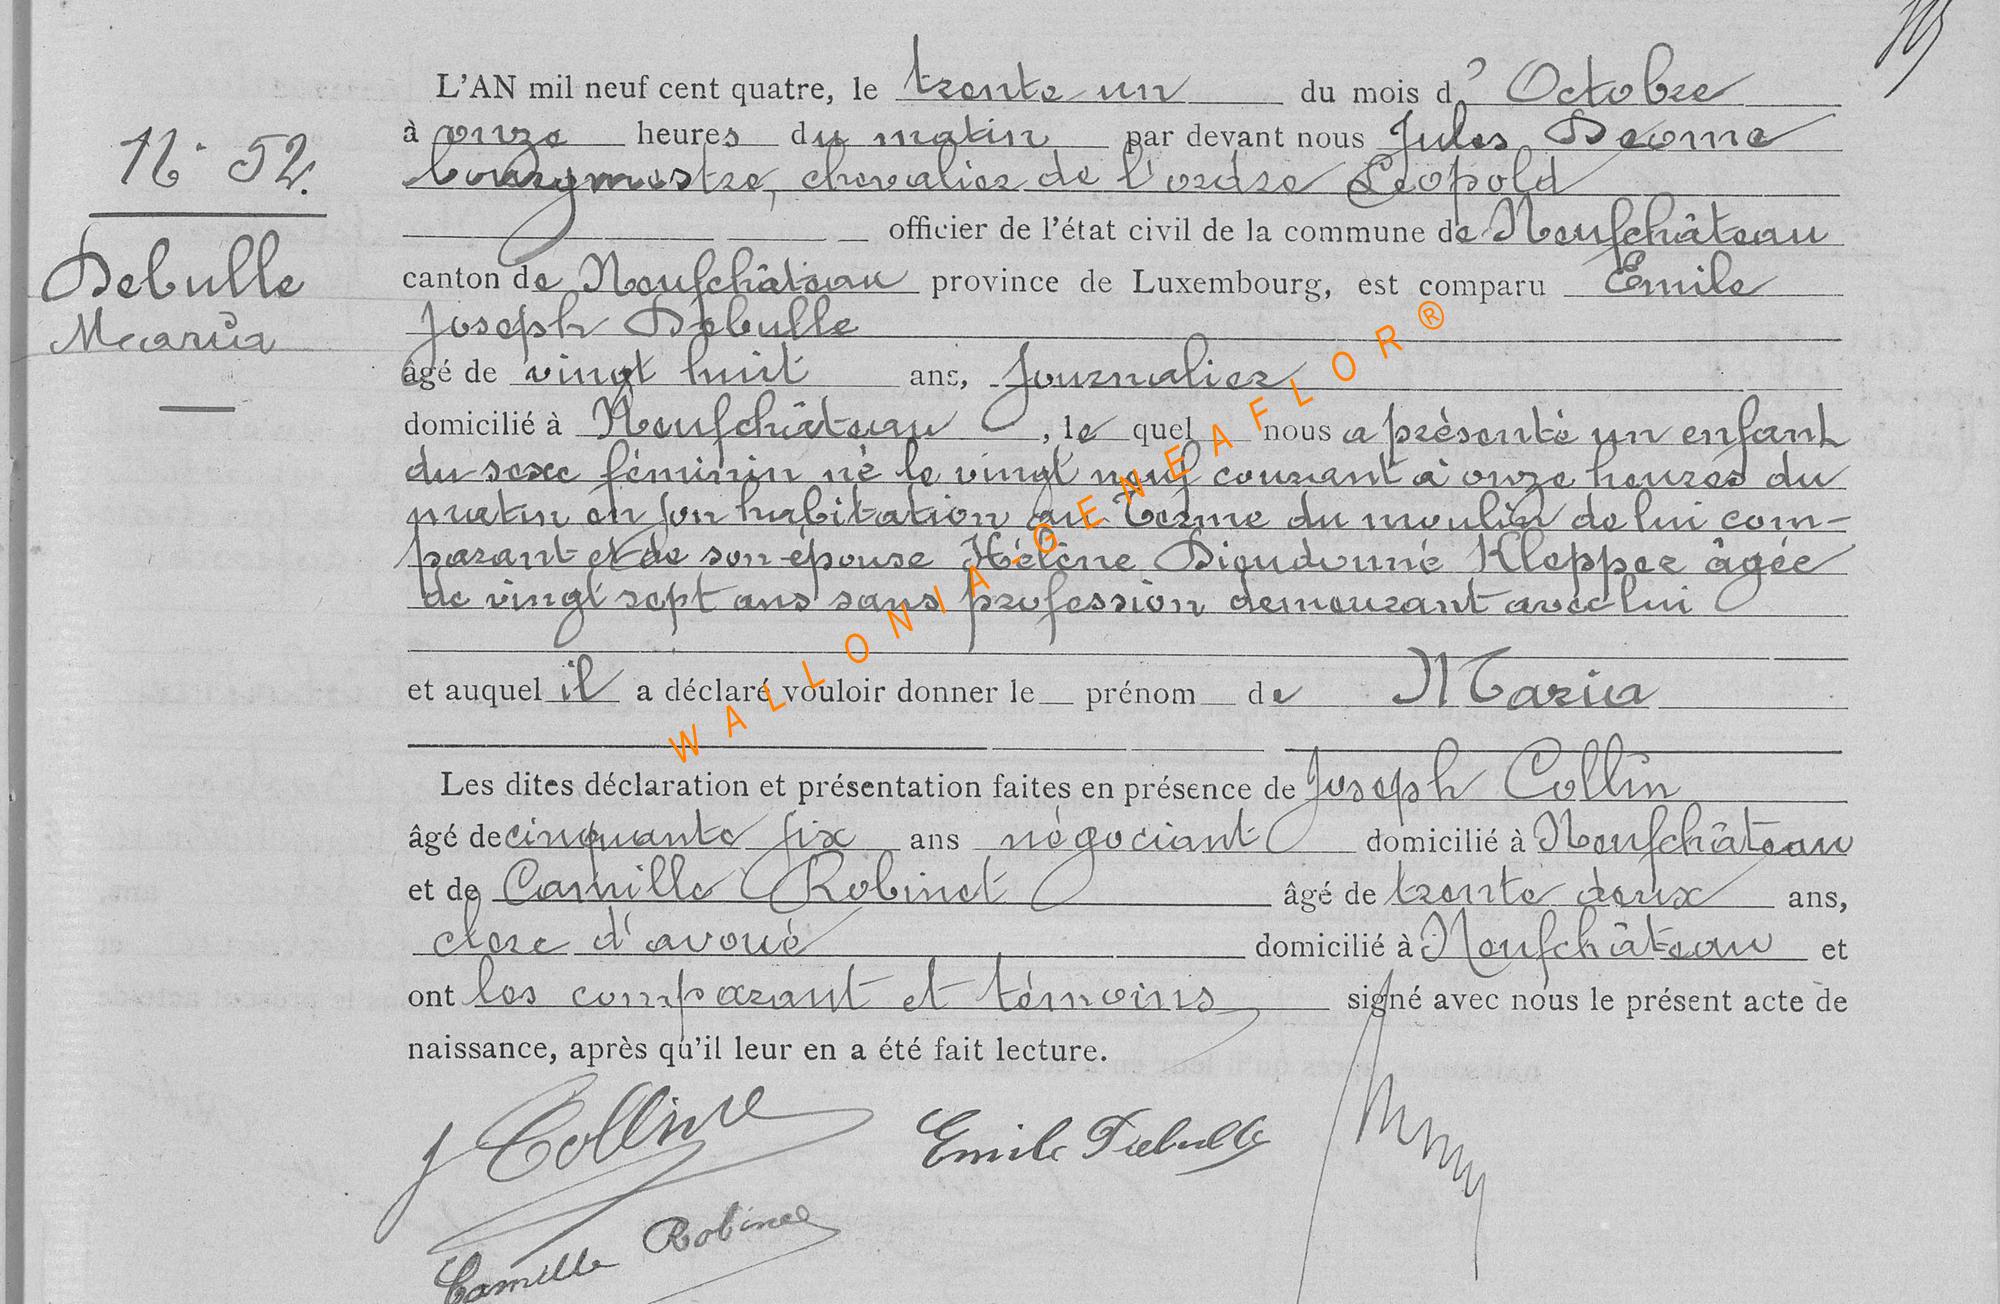 N° 52.
Debulle
Maria
L'AN mil neuf cent quatre, le trente un du mois d' Octobre
à onze heures du matin par devant nous Jules
bourgmestre, chevalier de l'ordre Léopold
officier de l'état civil de la commune de Neufchâteau
canton de Neufchâteau province de Luxembourg, est comparu Emile
Joseph Debulle
âgé de vingt huit ans, journalier
domicilié à Neufchâteau, le quel nous a présenté un enfant
du sexe féminin né le vingt neuf courant à onze heures du
matin en son habitation au Terme du moulin de lui com-
parant et de son épouse Hélène Dieudonné Klepper âgée
de vingt sept ans sans profession demeurant avec lui
et auquel il a déclaré vouloir donner le prénom de Maria
Les dites déclaration et présentation faites en présence de Joseph Collin
âgé de cinquante six ans négociant domicilié à Neufchâteau
et de Camille Robinet âgé de trente deux ans,
clerc d'avoué domicilié à Neufchâteau et
ont les comparant et témoins signé avec nous le présent acte de
naissance, après qu'il leur en a été fait lecture.
J Collin
Emile Debulle
Camille Robinet
WALLONIA-GENEAFLOR®